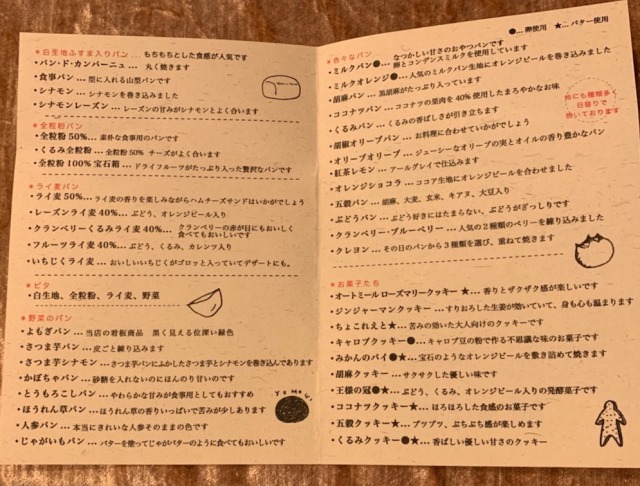 ＊白生地ふすま入りパン … もちもちとした食感が人気です
・パン・ド・カンパーニュ … 丸く焼きます
・食事パン … 型に入れる山型パンです
・シナモン … シナモンを巻き込みました
・シナモンレーズン … レーズンの甘みがシナモンとよく合います
＊全粒粉パン
・全粒粉 50%… 素朴な食事用のパンです
・くるみ全粒粉 … 全粒粉 50% チーズがよく合います
・全粒粉 100% 宝石箱 … ドライフルーツがたっぷり入った贅沢なパンです
＊ライ麦パン
・ライ麦 50%… ライ麦の香りを楽しみながらハムチーズサンドはいかがでしょう
・レーズンライ麦 40%… ぶどう、オレンジピール入り
・クランベリーくるみライ麦 40%… クランベリーの赤が目にもおいしく
食べてもおいしいです
・フルーツライ麦 40%… ぶどう、くるみ、カレンツ入り
・いちじくライ麦 … おいしいいちじくがゴロッと入っていてデザートにも。
＊ピタ
・白生地、全粒粉、ライ麦、野菜
＊野菜のパン
・よもぎパン … 当店の看板商品 黒く見える位深い緑色
・さつま芋パン … 皮ごと練り込みます
・さつま芋シナモン … さつま芋パンにふかしたさつま芋とシナモンを巻き込んであります
・かぼちゃパン … 砂糖を入れないのにほんのり甘いのです
・とうもろこしパン … やわらかな甘みが食事用としてもおすすめ
・ほうれん草パン … ほうれん草の香りいっぱいで苦みが少しあります
・人参パン … 本当にきれいな人参そのままの色です
・じゃがいもパン … バターを塗ってじゃがバターのように食べてもおいしいです
Yomogi
●… 卵使用 ★… バター使用
＊色々なパン
・ミルクパン●… なつかしい甘さのおやつパンです
卵とコンデンスミルクを使用しています
・ミルクオレンジ●… 人気のミルクパン生地にオレンジピールを巻き込みました
・胡麻パン … 黒胡麻がたっぷり入っています
・ココナツパン … ココナツの果肉を 40% 使用したまろやかなお味
・くるみパン … くるみの香ばしさが引き立ちます
・胡椒オリーブパン … お料理に合わせていかがでしょう
・オリーブオリーブ … ジューシーなオリーブの実とオイルの香り豊かなパン
・紅茶レモン … アールグレイで仕込みます
・オレンジショコラ … ココア生地にオレンジピールを合わせました
・五穀パン … 胡麻、大麦、玄米、キアヌ、大豆入り
・ぶどうパン … ぶどう好きにはたまらない、ぶどうがぎっしりです
・クランベリー・ブルーベリー … 人気の 2 種類のベリーを練り込みました
・クレヨン … その日のパンから 3 種類を選び、重ねて焼きます
他にも種類多く
日替りで
焼いております
＊お菓子たち
・オートミールローズマリークッキー★… 香りとザクザク感が楽しいです
・ジンジャーマンクッキー … すりおろした生姜が効いていて、身も心も温まります
・ちょこれえと★… 苦みの効いた大人向けのクッキーです
・キャロブクッキー●… キャロブ豆の粉で作る不思議な味のお菓子です
・みかんのパイ●★… 宝石のようなオレンジピールを敷き詰めて焼きます
・胡麻クッキー … サクサクした優しい味です
・王様の冠●★… ぶどう、くるみ、オレンジピール入りの発酵菓子です
・ココナツクッキー★… ほろほろした食感のお菓子です
・五穀クッキー★… プツプツ、ぷちぷち感が楽しめます
・くるみクッキー●★… 香ばしい優しい甘さのクッキー